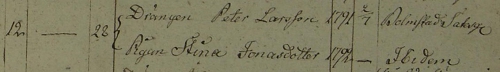 12 — 28 Drängen Peter Larsson 1791 2/7 Bolmstad Säkerg
Pigan Stina Jonasdotter 1792 — Ibidem